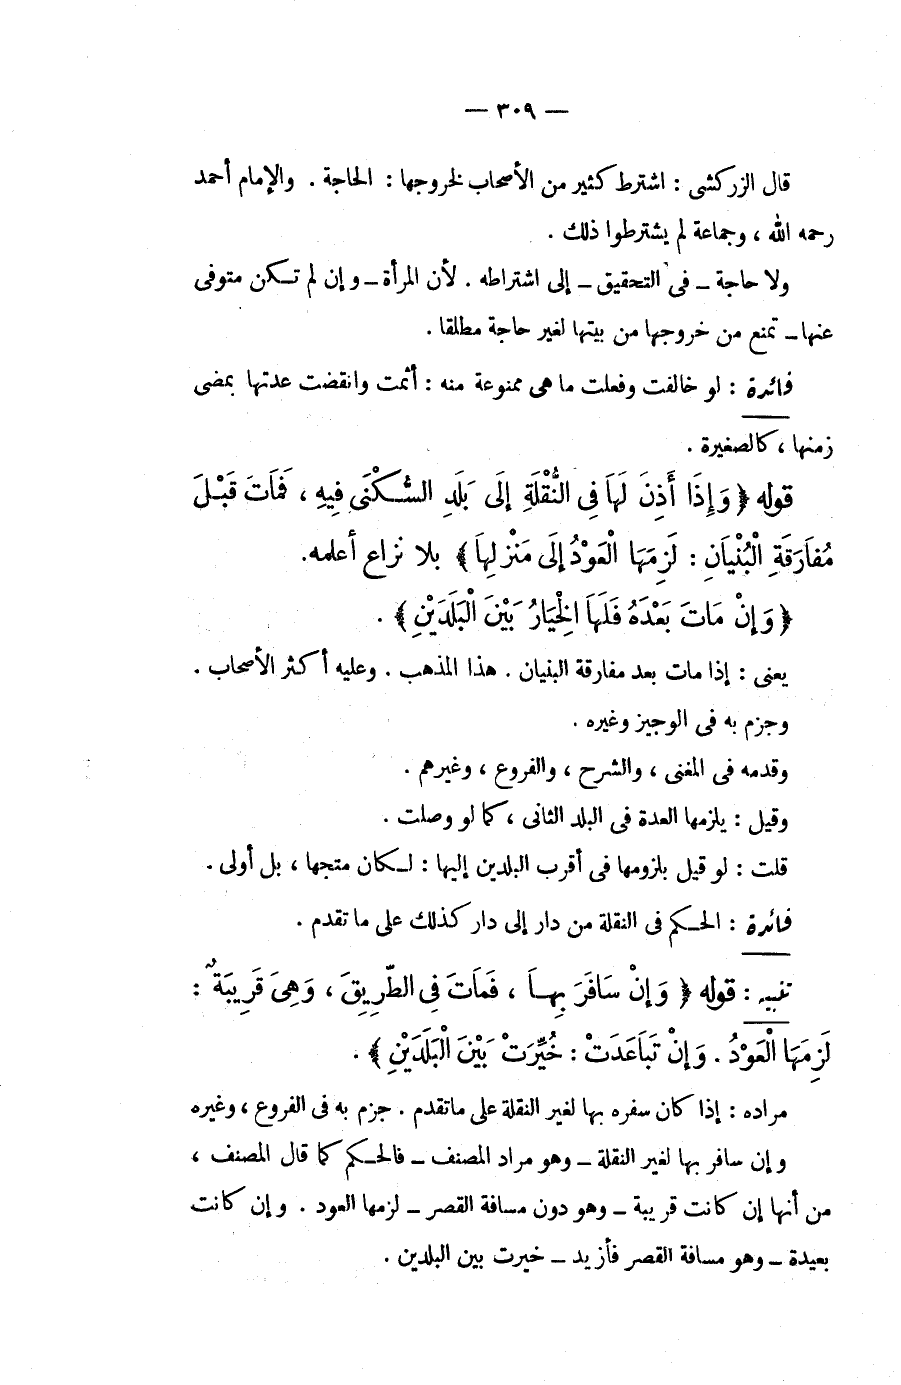 — ٣٠٩ —
قال الزركشى : اشترط كثير من الأصحاب لخروجها : الحاجة . والإمام أحمد
رحمه الله ، وجماعة لم يشترطوا ذلك .
ولا حاجة – فى التحقيق – إلى اشتراطه . لأن المرأة – وإن لم تكن متوفى
عنها – تمنع من خروجها من بيتها لغير حاجة مطلقا .
فائدة : لو خالفت وفعلت ما هى ممنوعة منه : أثمت وانقضت عدتها بمضى
زمنها ، كالصغيرة .
قوله ﴿ وَإِذَا أَذِنَ لَهَا فِى النُّقْلَةِ إِلَى بَلَدِ السُّكْنَى فِيهِ ، فَمَاتَ قَبْلَ
مُفَارَقَةِ الْبُنْيَانِ : لَزِمَهَا الْعَوْدُ إِلَى مَنْزِلِهَا ﴾ بلا نزاع أعلمه.
﴿ وَإِنْ مَاتَ بَعْدَهُ فَلَهَا الْخِيَارُ بَيْنَ الْبَلَدَيْنِ ﴾ .
يعنى : إذا مات بعد مفارقة البنيان . هذا المذهب . وعليه أكثر الأصحاب .
وجزم به فى الوجيز وغيره .
وقدمه فى المغنى ، والشرح ، والفروع ، وغيرهم .
وقيل : يلزمها العدة فى البلد الثانى ، كما لو وصلت .
قلت : لو قيل بلزومها فى أقرب البلدين إليها : لكان متجها ، بل أولى .
فائدة : الحكم فى النقلة من دار إلى دار كذلك على ما تقدم .
تنبيه : قوله ﴿ وَإِنْ سَافَرَ بِهَا ، فَمَاتَ فِى الطَّرِيقِ ، وَهِىَ قَرِيبَةٌ :
لَزِمَهَا الْعَوْدُ . وَإِنْ تَبَاعَدَتْ : خُيِّرَتْ بَيْنَ الْبَلَدَيْنِ ﴾ .
مراده : إذا كان سفره بها لغير النقلة على ماتقدم . جزم به فى الفروع ، وغيره
وإن سافر بها لغير النقلة – وهو مراد المصنف – فالحكم كما قال المصنف ،
من أنها إن كانت قريبة – وهو دون مسافة القصر – لزمها العود . وإن كانت
بعيدة – وهو مسافة القصر فأزيد – خيرت بين البلدين .